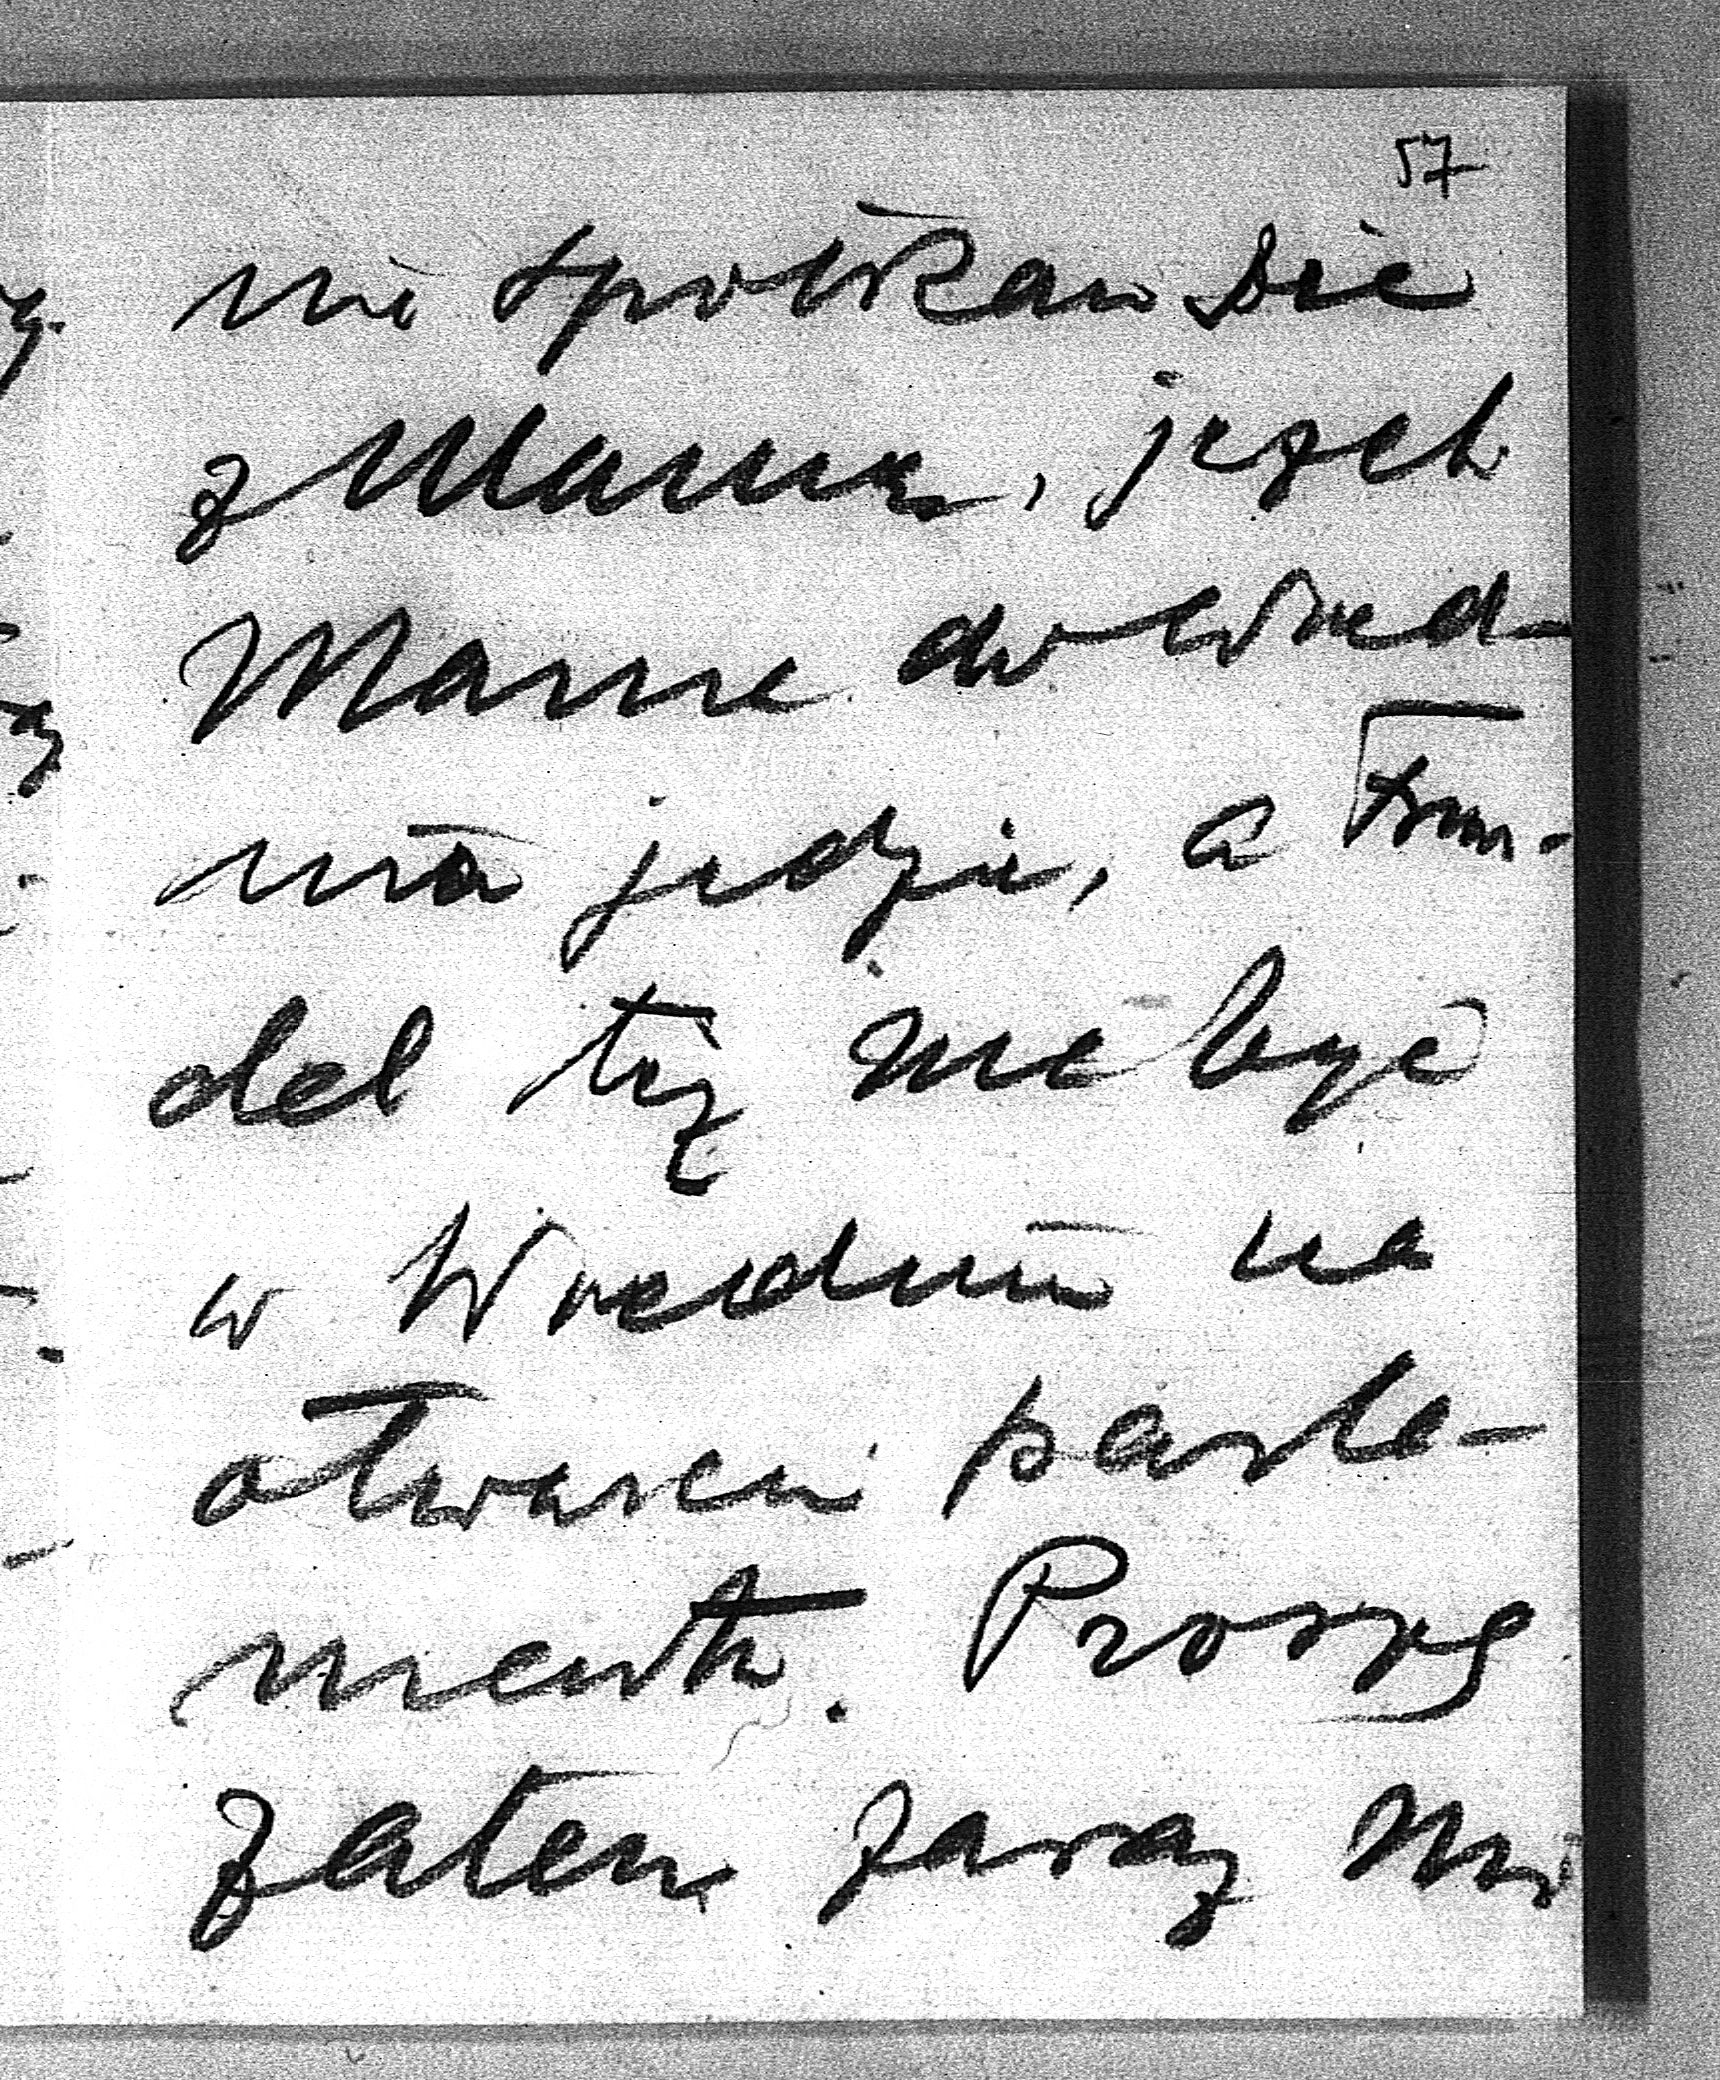 57
nie spotkam się
z Mamą, jeżeli
Mama do Wied-
nia jedzie, a Trun-
del też ma być
w Wiedniu na
otwarciu parla-
mentu. Proszę
zatem zaraz mi